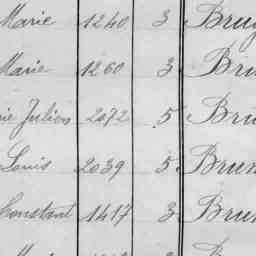 Marie 1240 3 Bruy
Marie 1260 3 Bru
rie Julien 2072 5 Bru
Louis 2039 5 Brun
Constant 1417 3 Brun